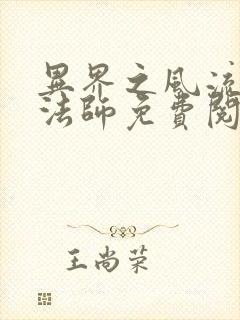 異界之風流
法師免費閱
王尚荣